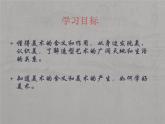 学习目标
懂得美术的含义和作用，从身边发现美、认识美，了解造型艺术的广阔天地和生活的关系。
知道美术的含义和美术的产生，如何学好美术。